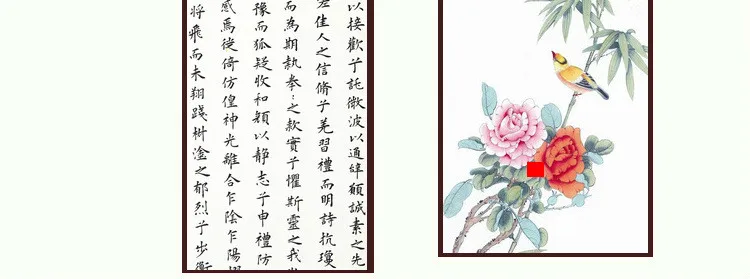 以接歡兮託微波以通辭願誠素之先
佳人之信脩兮羌習禮而明詩抗瓊
而為期執拳〻之款實兮懼斯靈之我
豫而狐疑收和顏以静志兮申禮防
感焉徙倚仿偟神光離合乍陰乍陽
將飛而未翔踐椒塗之郁烈兮步衡